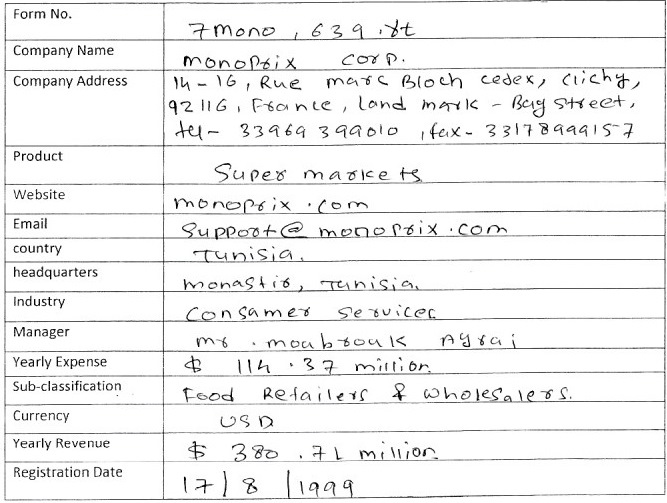 Form No. 7mono, 639.xt
Company Name monoprix corp.
Company Address 14-16, Rue marc Bloch cedex, clichy,
92116, France, land mark - Bay street,
tel- 33969399010, fax- 33178999157
Product Super markets
Website monoprix.com
Email Support@monoprix.com
country Tunisia.
headquarters monastir, Tunisia.
Industry Consamer services
Manager mr. moubrouk Ayrai
Yearly Expense $ 114.37 million
Sub-classification Food Retailers & wholesalers.
Currency USD
Yearly Revenue $ 380.71 million
Registration Date 17/8/1999